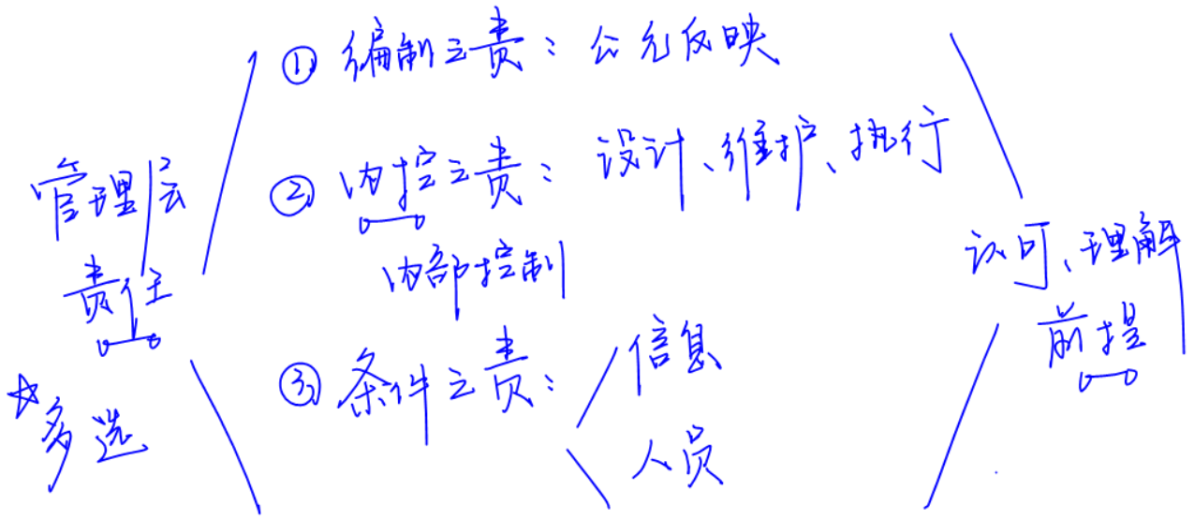 管理层
责任
☆多选
① 编制之责：公允反映
② 内控之责：设计、维护、执行
内部控制
③ 条件之责：
信息
人员
认可、理解
前提